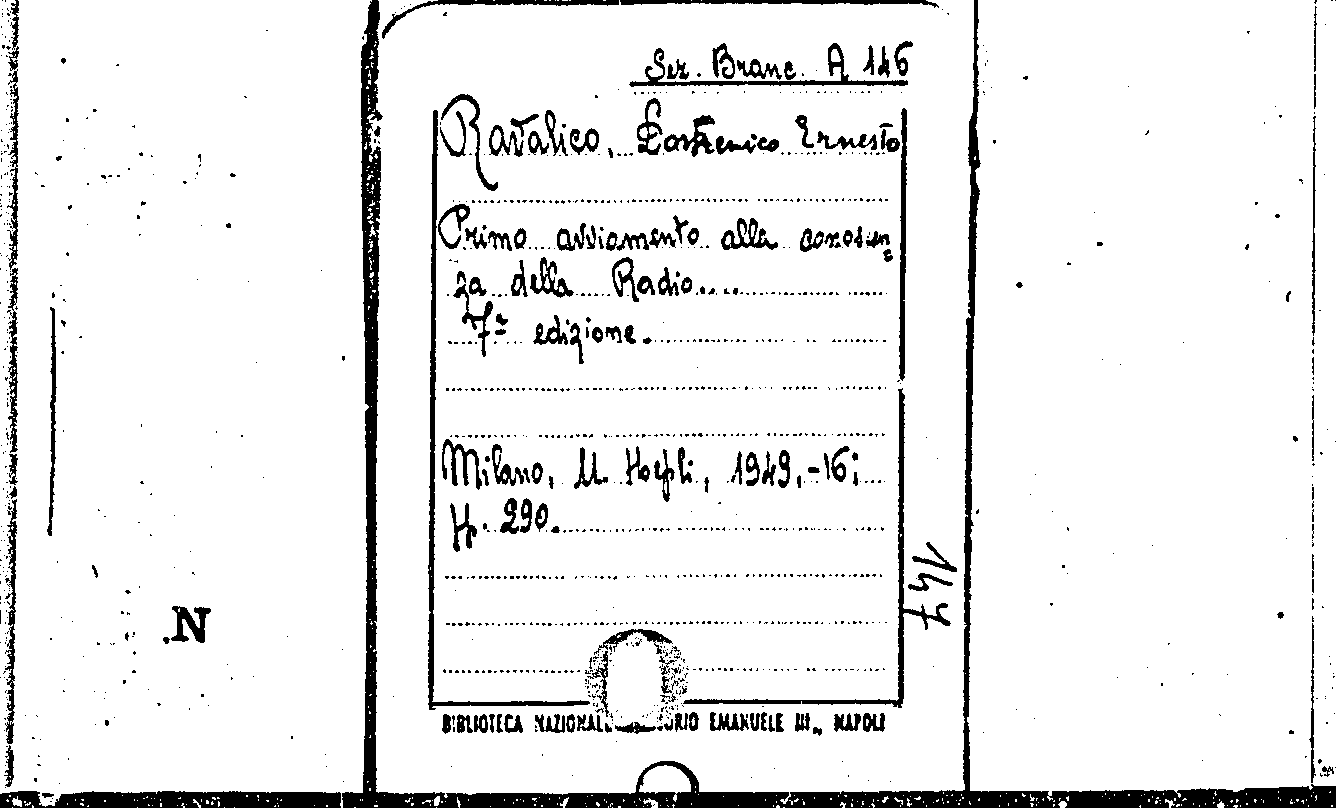 Sez. Branc. A 146
Ravalico, Domenico Ernesto
Primo avviamento alla conoscen
za della Radio....
7ª edizione.
Milano, U. Hoepli, 1949,-16;
pp. 290.
147
.N
BIBLIOTECA NAZIONALE EMANUELE III., NAPOLI